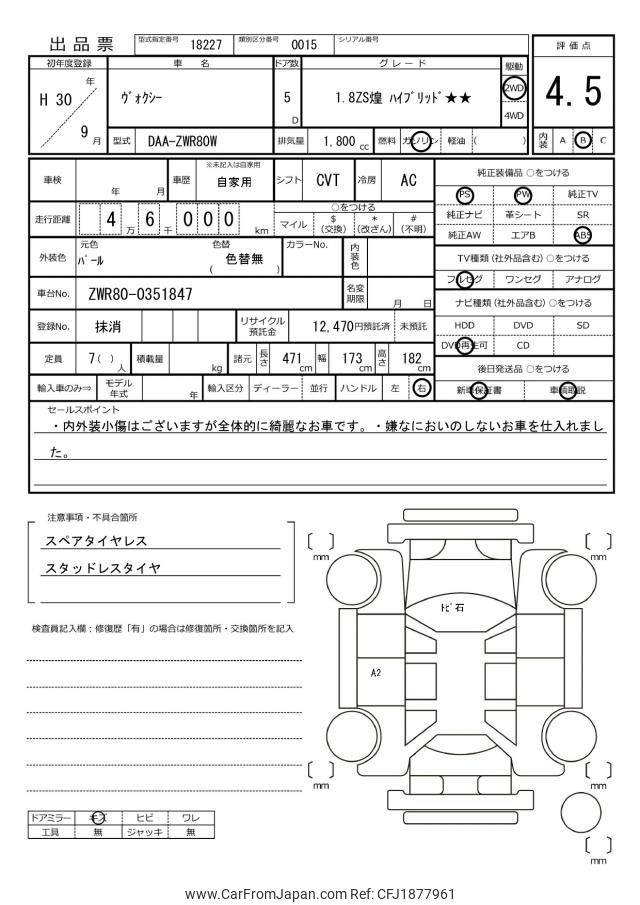 出品票 型式指定番号 18227 類別区分番号 0015 シリアル番号
評価点
4.5
内装 A B C
初年度登録 車名 ドア数 グレード 駆動
H 30 年 / 9 月
ヴォクシー 5 D 1.8ZS煌 ハイブリッド★★ 2WD
4WD
型式 DAA-ZWR80W 排気量 1,800 cc 燃料 ガソリン 軽油 ( )
車検 年 月 車歴 ※未記入は自家用 自家用 シフト CVT 冷房 AC
走行距離 4 万 6 千 0 0 0 km
○をつける
マイル $(交換) *(改ざん) #(不明)
外装色 元色 パール 色替 ( 色替無 ) カラーNo. 内装色
車台No. ZWR80-0351847 名変期限 月 日
登録No. 抹消 リサイクル預託金 12,470円預託済 未預託
定員 7 ( ) 人 積載量 kg 諸元 長さ 471 cm 幅 173 cm 高さ 182 cm
輸入車のみ⇒ モデル年式 年 輸入区分 ディーラー 並行 ハンドル 左 右
純正装備品 ○をつける
PS PW 純正TV
純正ナビ 革シート SR
純正AW エアB ABS
TV種類 (社外品含む) ○をつける
フルセグ ワンセグ アナログ
ナビ種類 (社外品含む) ○をつける
HDD DVD SD
DVD再生可 CD
後日発送品 ○をつける
新車保証書 車輌取説
セールスポイント
・内外装小傷はございますが全体的に綺麗なお車です。・嫌なにおいのしないお車を仕入れまし
た。
注意事項・不具合箇所
スペアタイヤレス
スタッドレスタイヤ
検査員記入欄：修復歴「有」の場合は修復箇所・交換箇所を記入
ドアミラー キズ ヒビ ワレ
工具 無 ジャッキ 無
[ ] mm
[ ] mm
トビ石
A2
[ ] mm
[ ] mm
[ ] mm
www.CarFromJapan.com Ref: CFJ1877961